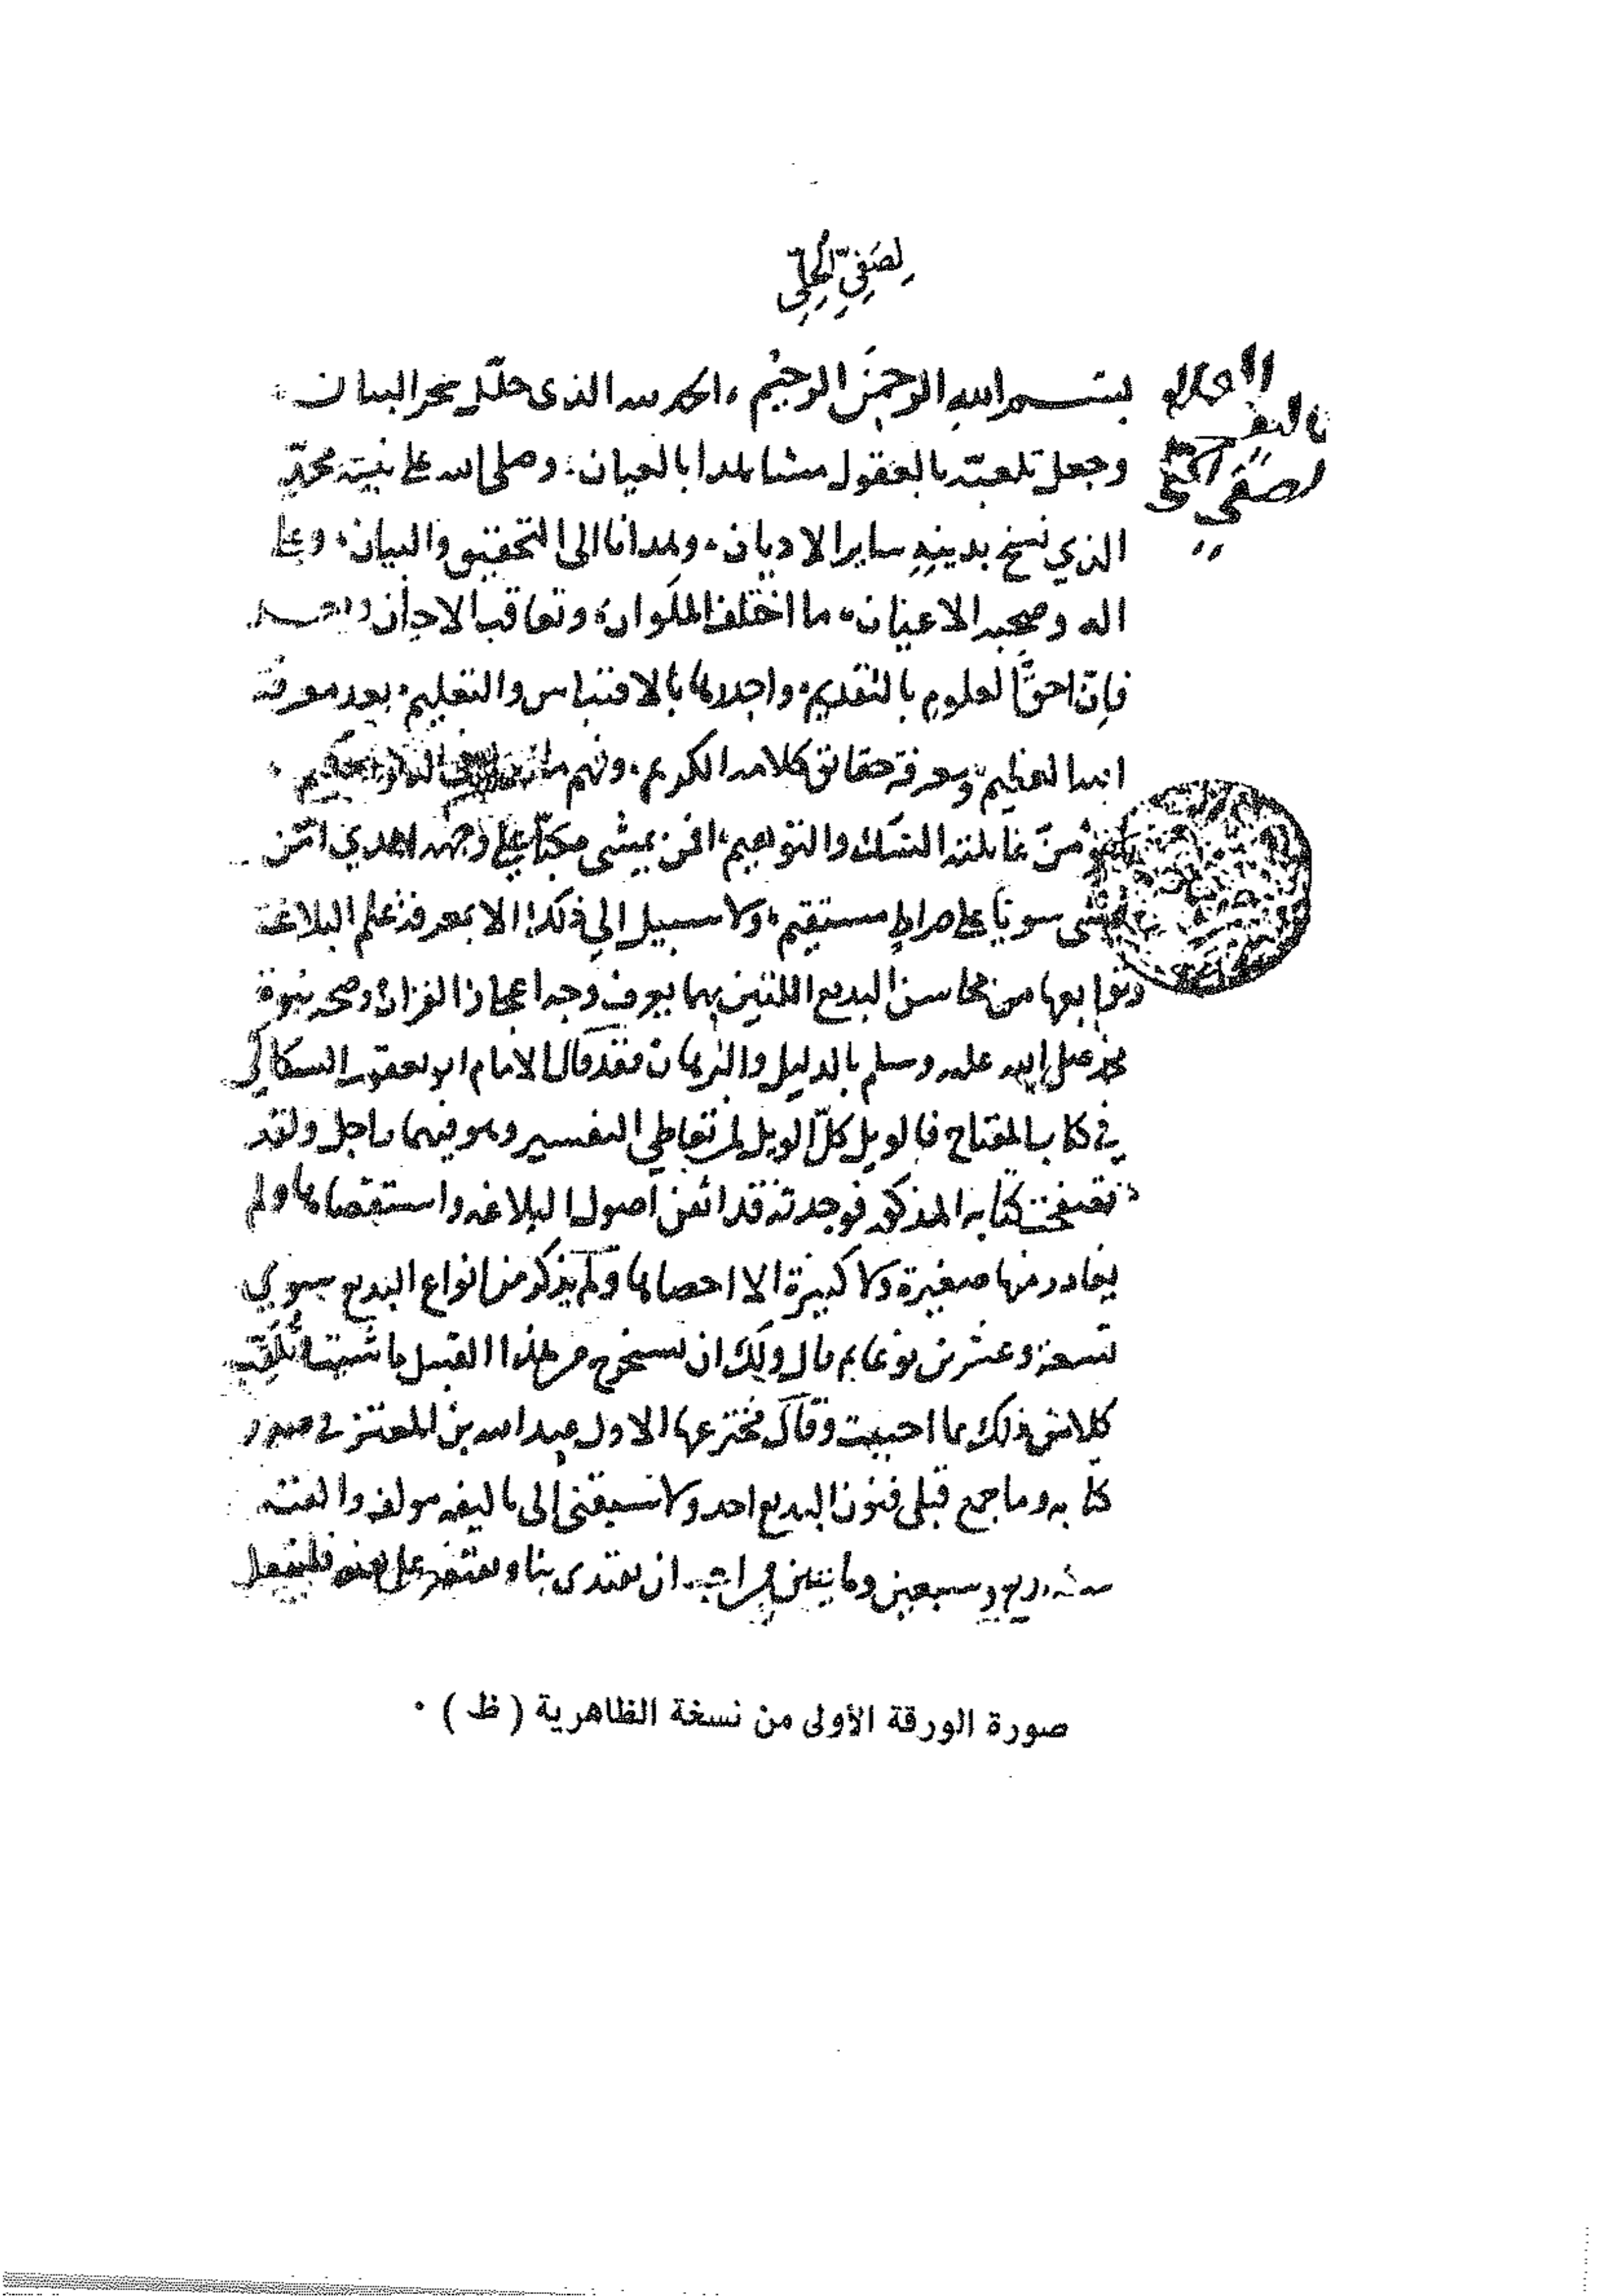 لِصَفِيِّ الحِلِّي
بسم الله الرحمن الرحيم، الحمد لله الذي حلّل سحر البيان
وجعل تلعبّه بالعقول مشاهدا بالعيان، وصلى الله على نبيّه محمّد
الذي نسخ بدينه ساير الاديان، وهدانا الى التحقيق والبيان، وعلى
اله وصحبه الاعيان، ما اختلف الملوان، وتعاقب الاحيان
فإنّ احقّ العلوم بالتقديم، واجدرها بالاقتباس والتعليم، بعد معرفة
الله العظيم، ومعرفة حقائق كلامه الكريم، وفهم ما
من غايلة الشك والتوهيم، افمن يمشي مكبّا على وجهه اهدي امّن
يمشي سويّا على صراط مستقيم، ولا سبيل الي ذلك الا بمعرفة علم البلاغة
وتوابعها من محاسن البديع اللتين بهما يعرف وجه اعجاز القرآن وصحة نبوة
محمد صلى الله عليه وسلم بالدليل والبرهان فقد قال الامام ابو يعقوب السكاكي
في كتاب المفتاح فالويل كلّ الويل لمن تعاطي التفسير وهو فيهما راجل ولقد
تصفحت كتابه المذكور فوجدته قد اتقن اصول البلاغه واستقصاها ولم
يغادر منها صغيرة ولا كبيرة الا احصاها ولم يذكر من انواع البديع سوي
تسعة وعشرين نوعا ثم قال ولك ان تستخرج من هذا القبيل ما شيت وتلقب
كلا من ذلك بما احببت وقال مخترعها الاول عبد الله بن المعتز في صدر
كتابه وما جمع قبلي فنون البديع احد ولا سبقني الى تاليفه مولف والفته
سنة اربع وسبعين ومايتين فمن احب ان يقتدى بنا ويقتصر على هذه فليفعل
لصفي الحلي
صورة الورقة الأولى من نسخة الظاهرية ( ظ ) ٠